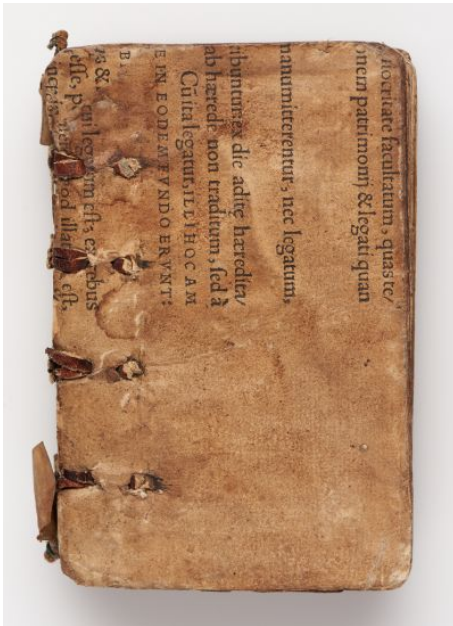 iocritate facultatum, quas te/
onem patrimonij & legati quan
manumitterentur, nec legatum,
ibuntur: ex die aditę hæredita/
ab hærede non traditum, sed à
Cui ita legatur, ILLI HOC AM
E IN EODEM FVNDO ERVNT:
B
us & legatum est, ex rebus
esse, quod est,